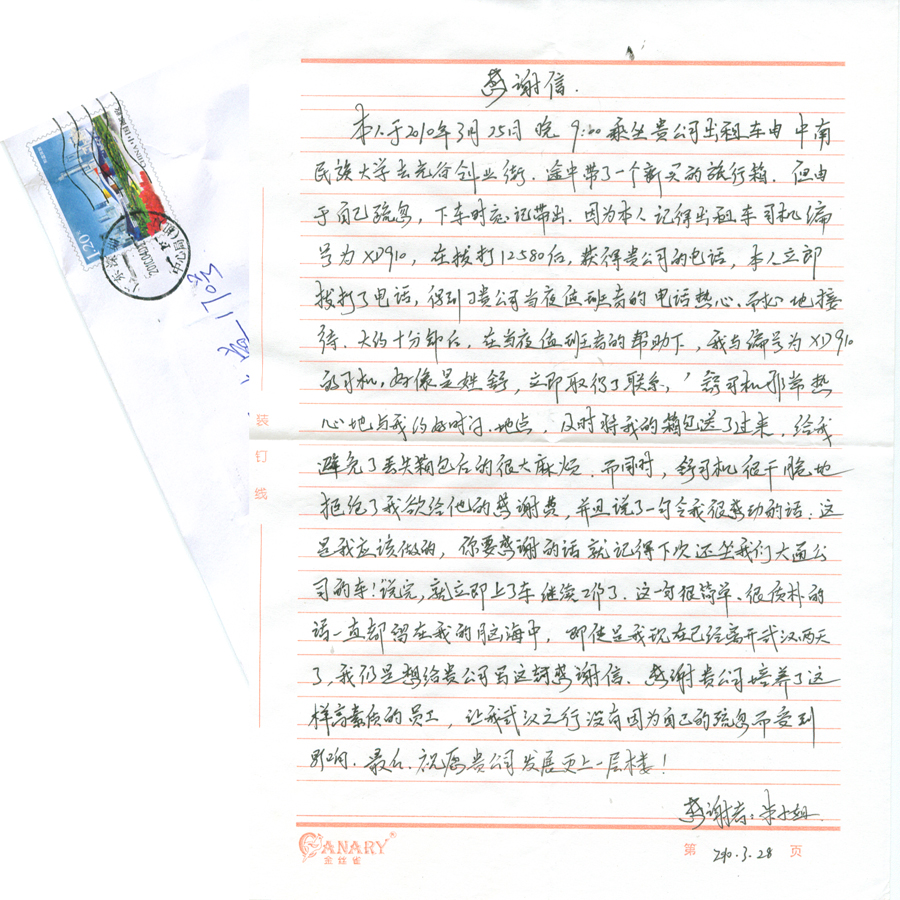 感谢信.
本人于2010年3月25日晚9:00乘坐贵公司出租车由中南
民族大学去光谷创业街.途中带了一个新买的旅行箱.但由
于自己疏忽,下车时忘记带出.因为本人记得出租车司机编
号为XD910,在拨打12580后,获得贵公司的电话,本人立即
拨打了电话,得到了贵公司当夜值班者的电话热心、耐心地接
待.大约十分钟后,在当夜值班者的帮助下,我与编号为XD910
的司机,好像是姓舒,立即取得了联系,舒司机非常热
心地与我约好时间、地点,及时将我的箱包送了过来,给我
避免了丢失箱包后的很大麻烦.而同时,舒司机很干脆地
拒绝了我欲给他的感谢费,并且说了一句令我很感动的话:这
是我应该做的,你要感谢的话就记得下次还坐我们大通公
司的车!说完,就立即上了车继续工作了.这一句很简单、很质朴的
话一直都留在我的脑海中,即使是我现在已经离开武汉两天
了,我仍是想给贵公司写这封感谢信.感谢贵公司培养了这
样高素质的员工,让我武汉之行没有因为自己的疏忽而受到
影响.最后.祝愿贵公司发展更上一层楼!
感谢者:朱小姐
装
钉
线
CANARY®
金丝雀
第 2010.3.28 页
1.20
中国邮政
CHINA
170号